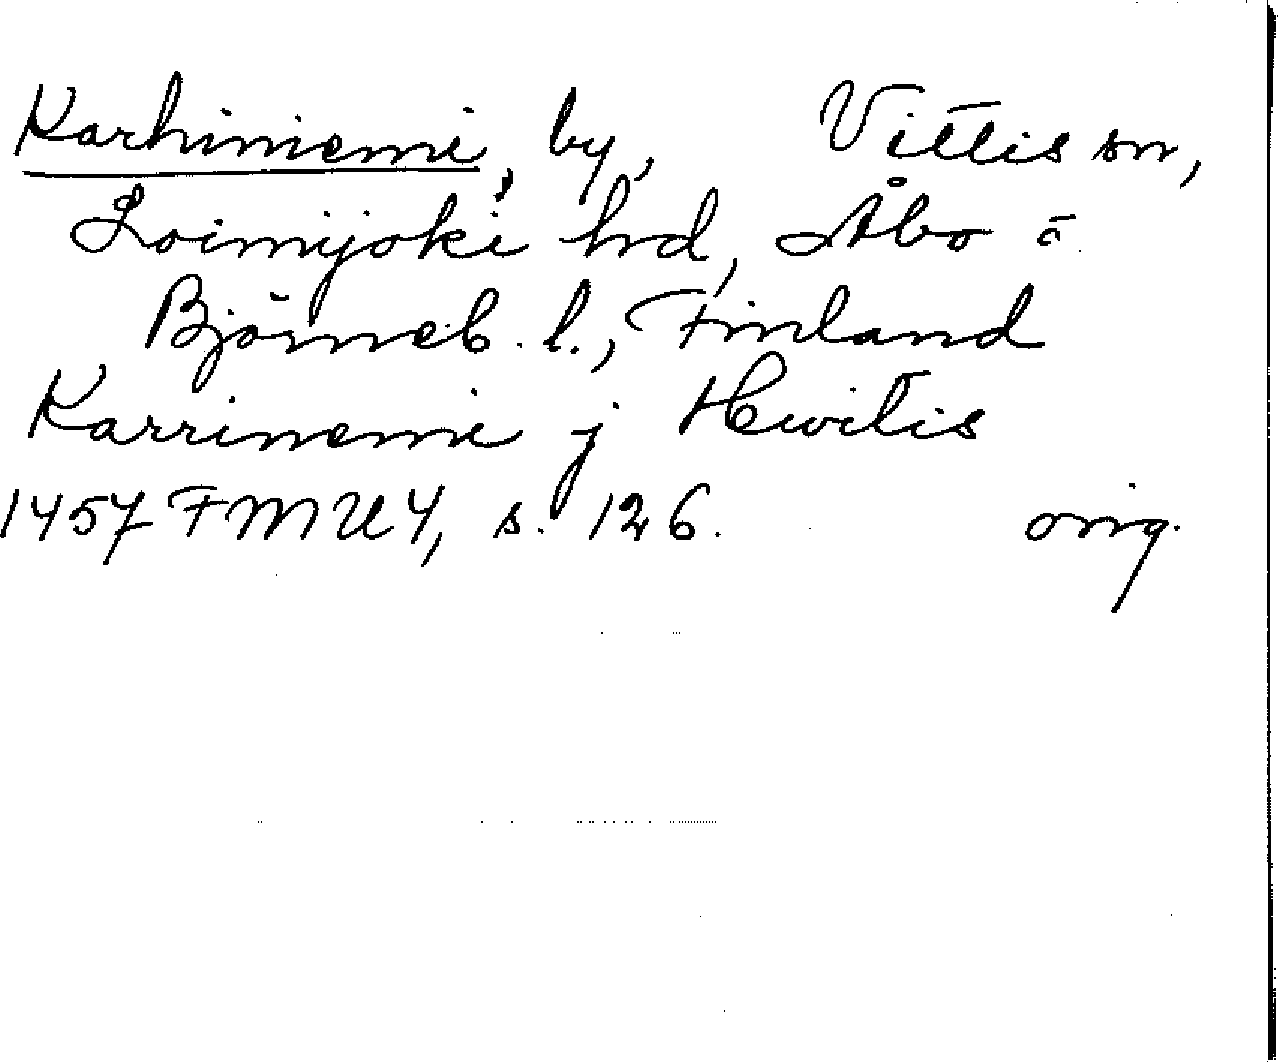 Karhiniemi, by, Vittis sn,
Loimijoki hd, Åbo o.
Björneb. l., Finland
Karrinemi j Hwitis
1457 FMU 4, s. 126. orig.